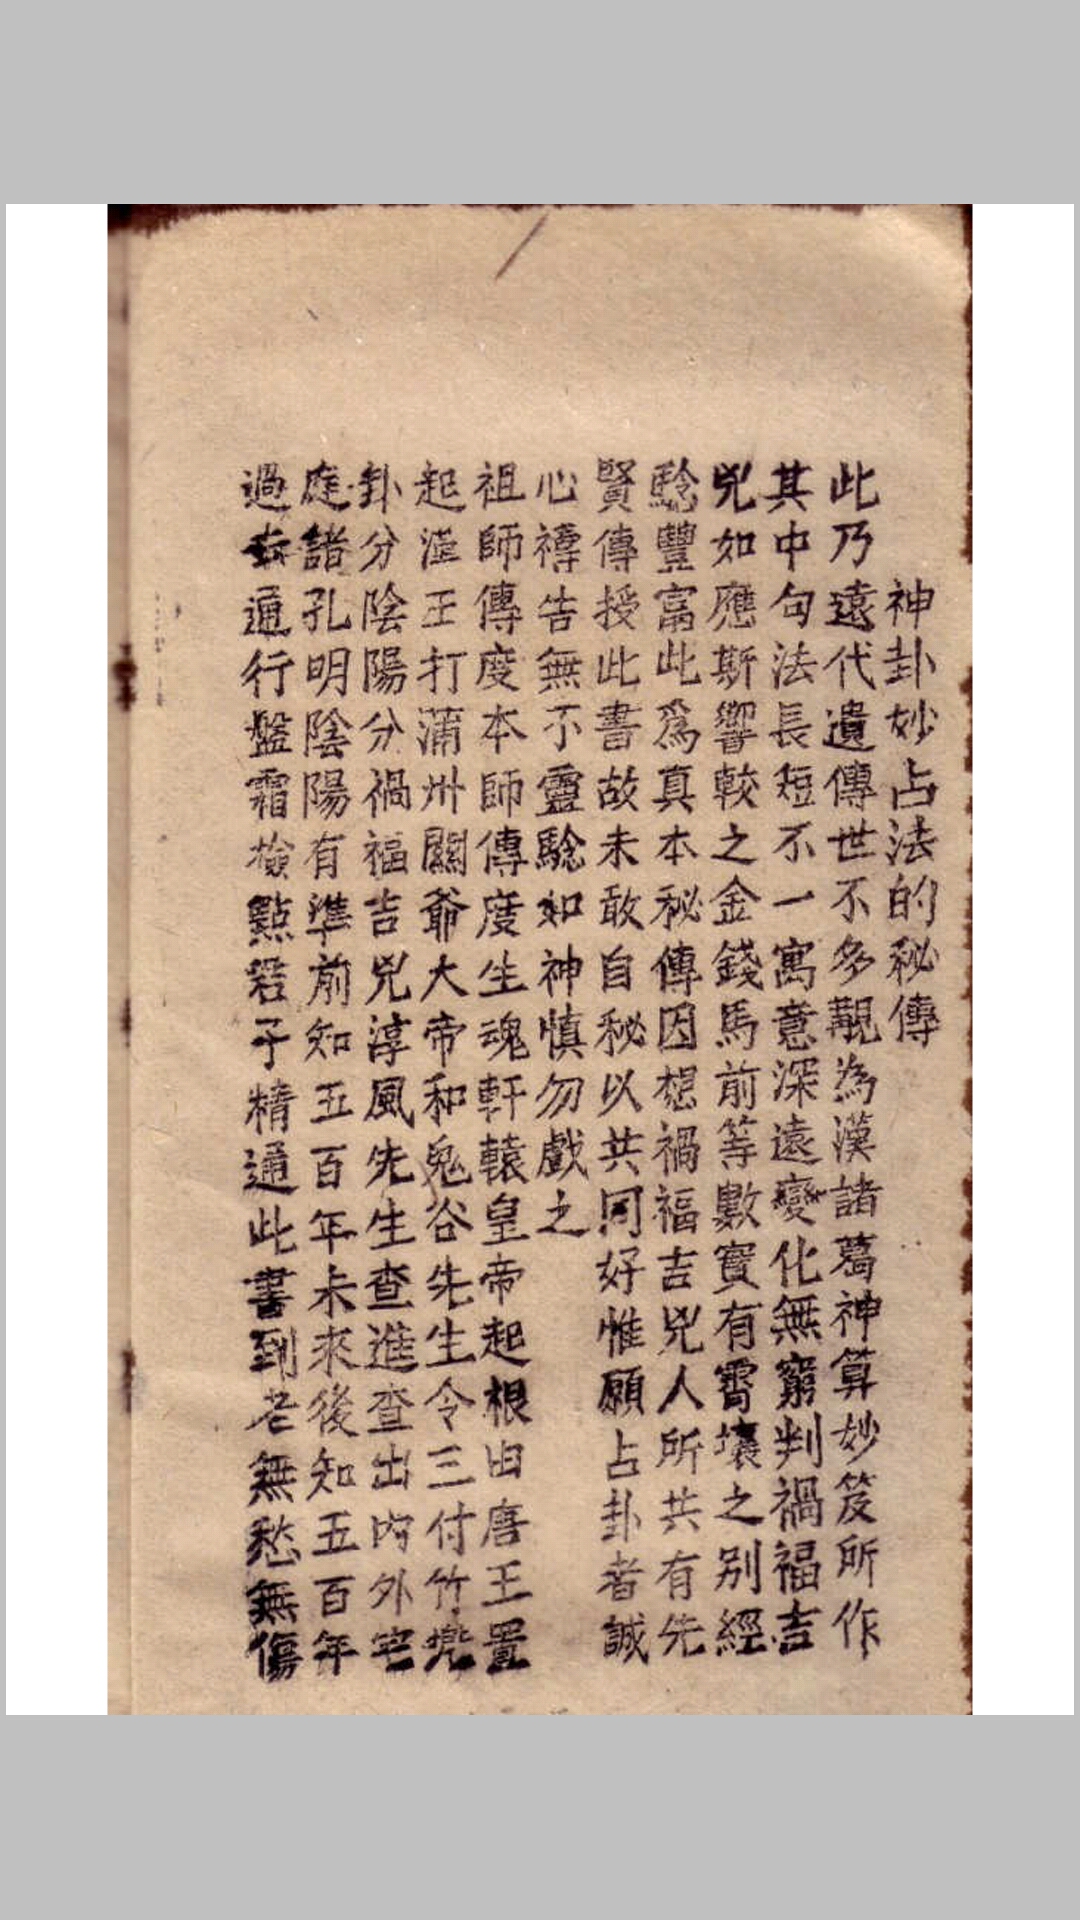 神卦妙占法的秘傳
此乃遠代遺傳世不多覩為漢諸葛神算妙笈所作
其中句法長短不一寓意深遠變化無窮判禍福吉
兇如應斯響較之金錢馬前等數寔有霄壤之別經
驗豐富此爲真本秘傳因想禍福吉兇人所共有先
賢傳授此書故未敢自秘以共同好惟願占卦者誠
心禱告無不靈驗如神慎勿戲之
祖師傳度本師傳度生魂軒轅皇帝起根由唐王置
起 王打蒲州關爺大帝和鬼谷先生令三付竹兠
卦分陰陽分禍福吉兇淳風先生查進查出內外宅
庭諸孔明陰陽有準前知五百年未來後知五百年
過去通行盤霜檢點君子精通此書到老無愁無傷